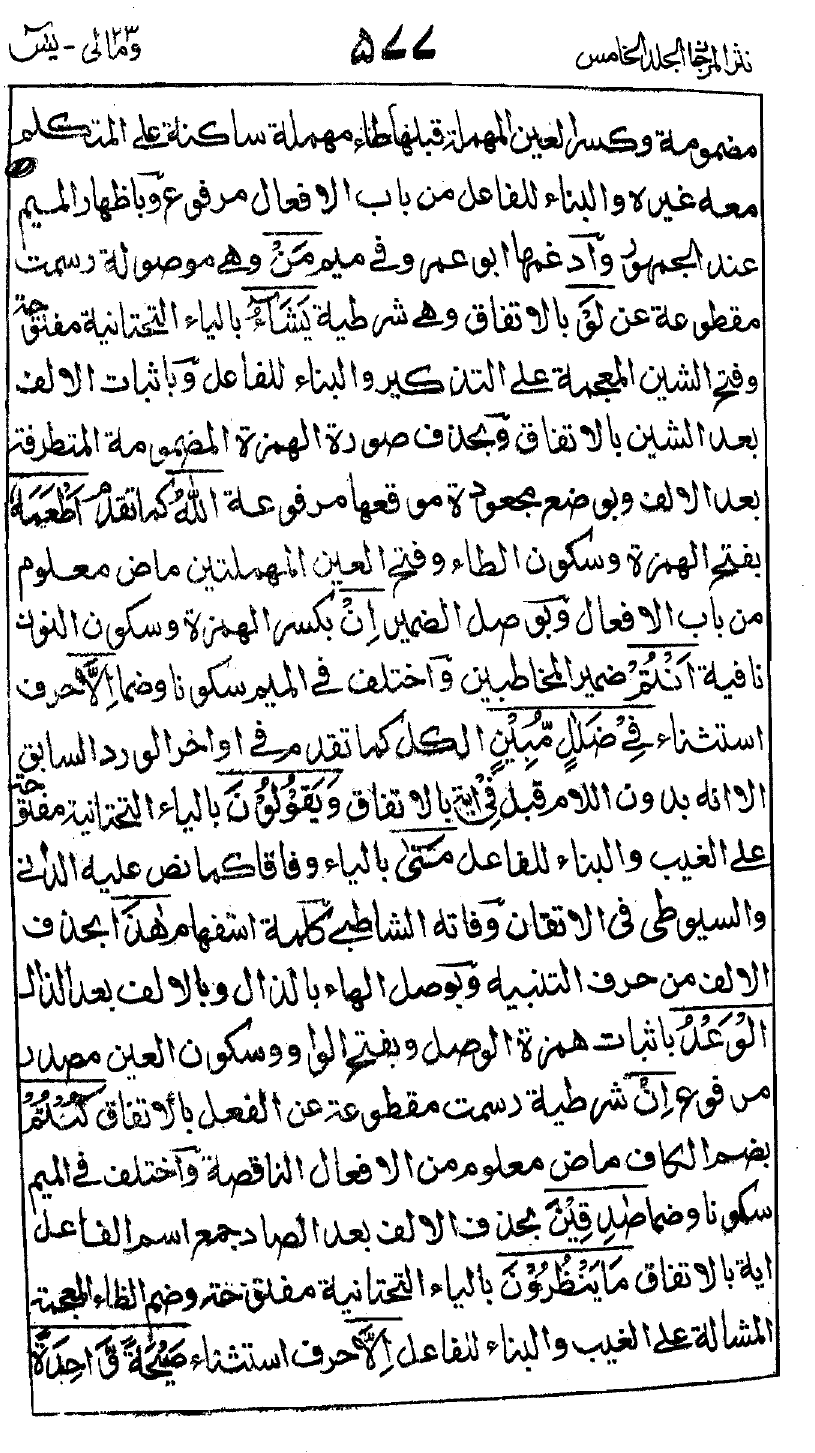 نثر المرجان المجلد الخامس
۵۷۷
ومالی ٢٣ - یٰسٓ
مضمومة وكسر العين المهملة قبلها طاء مهملة ساكنة على المتكلم
معه غيره والبناء للفاعل من باب الافعال مرفوع وباظهار الميم
عند الجمهور وادغمها ابو عمرو في ميم مَنْ وهي موصولة رسمت
مقطوعة عن لَوْ بالاتفاق وهي شرطية يَشَآءُ بالياء التحتانية مفتوحة
وفتح الشين المعجمة على التذكير والبناء للفاعل وباثبات الالف
بعد الشين بالاتفاق وبحذف صورة الهمزة المضمومة المتطرفة
بعد الالف وبوضع مجعودة موقعها مرفوعة اللّٰهُ كما تقدم اَطْعَمَهٗ
بفتح الهمزة وسكون الطاء وفتح العين المهملتين ماض معلوم
من باب الافعال وبوصل الضمير اِنْ بكسر الهمزة وسكون النون
نافية اَنْتُمْ ضمير المخاطبين واختلف في الميم سكونا وضما اِلَّا حرف
استثناء فِيْ ضَلٰلٍ مُّبِيْنٍ الكل كما تقدم في اواخر الورد السابق
الا انه بدون اللام قبل فِيْ اية بالاتفاق وَيَقُوْلُوْنَ بالياء التحتانية مفتوحة
على الغيب والبناء للفاعل مَتٰى بالياء وفاقا كما نص عليه الداني
والسيوطي في الاتقان وفاته الشاطبي كلمة استفهام هٰذَا بحذف
الالف من حرف التنبيه وبوصل الهاء بالذال وبالالف بعد الذال
الْوَعْدُ باثبات همزة الوصل وبفتح الواو وسكون العين مصدر
مرفوع اِنْ شرطية رسمت مقطوعة عن الفعل بالاتفاق كُنْتُمْ
بضم الكاف ماض معلوم من الافعال الناقصة واختلف في الميم
سكونا وضما صٰدِقِيْنَ بحذف الالف بعد الصاد جمع اسم الفاعل
اية بالاتفاق مَا يَنْظُرُوْنَ بالياء التحتانية مفتوحة وضم الظاء المعجمة
المشالة على الغيب والبناء للفاعل اِلَّا حرف استثناء صَيْحَةً وَّاحِدَةً